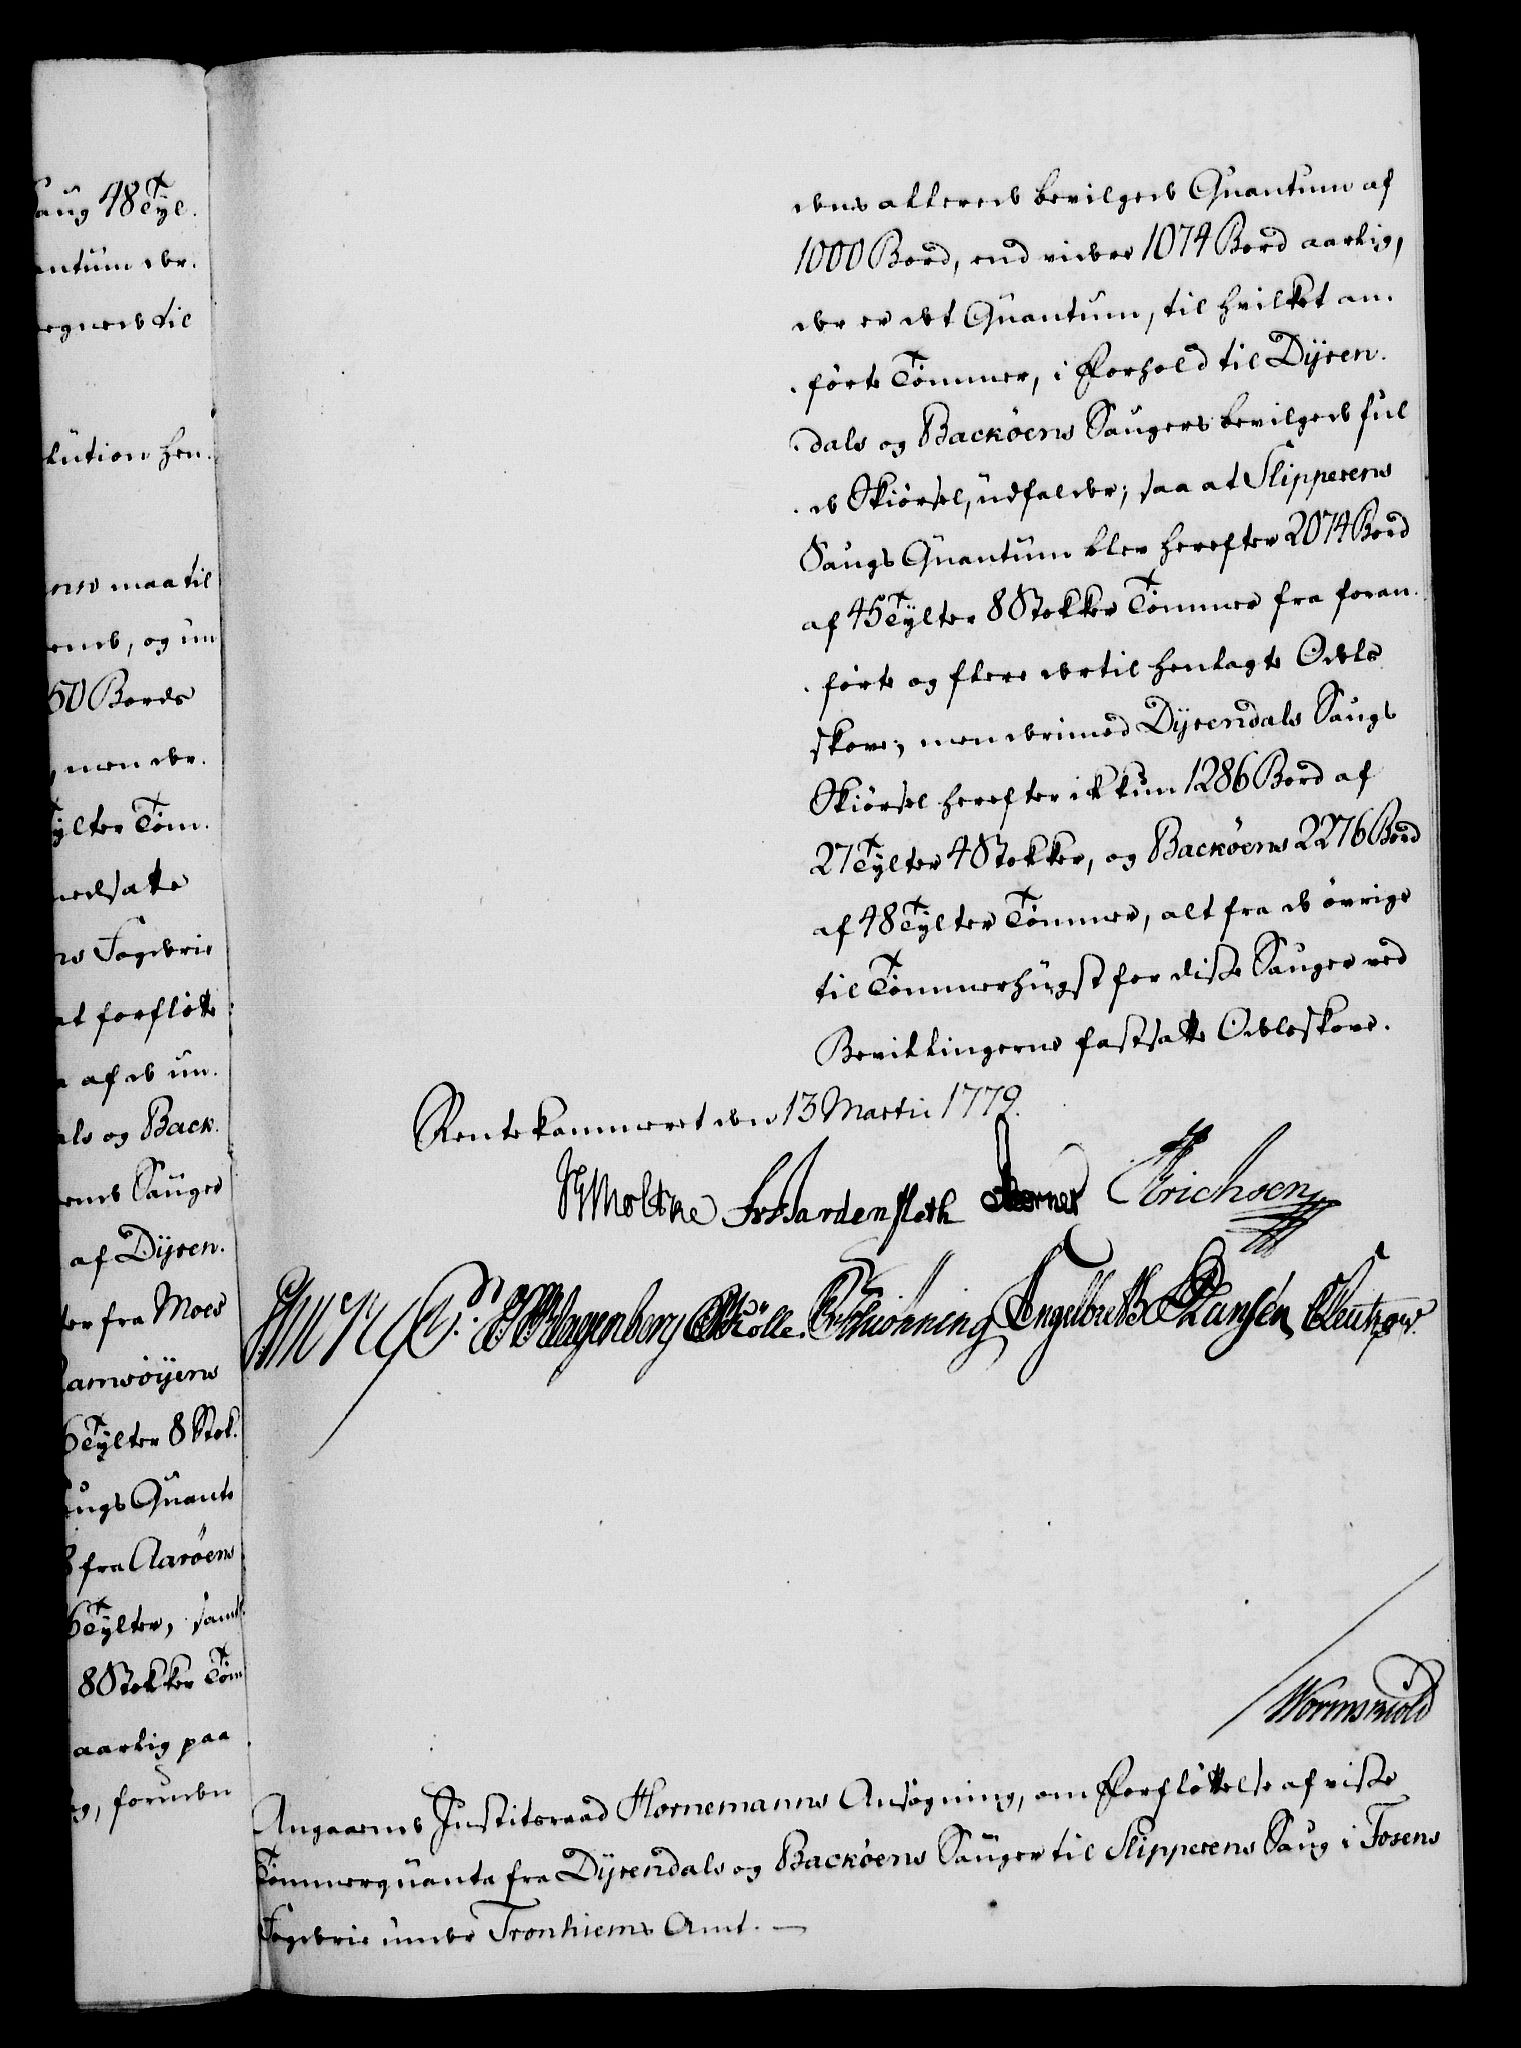 aug 48 Tyl.
antum der.
egnede til
lution hen.
ens maa til
ende, og un
50 Bords
men der.
ylter Töm.
nedsatte
ns Fogderie
at forflötte
af de un.
als og Back.
ens Sauger
af Dyren.
ter fra Moes
amsöyens
6 Tylter 8 Stok.
augs Quanto
fra Aaröens
6 Tylter, samt
8 Stokker Töm
aarlig paa
g, foruden
dens allerede bevilgede Quantum af
1000 Bord, end videre 1074 Bord aarlig,
der er det Quantum, til hvilket an.
förte Tömmer, i Forhold til Dyren.
dals og Backöens Saugers bevilgede ful
de Skiörsel, udfalder; saa at Slipperens
Saugs Quantum blev herefter 2074 Bord
af 45 Tylter 8 Stokker Tömmer fra foran.
förte og flere dertil henlagte Odels
skove; men derimod Dyrendals Saugs
Skiörsel herefter ikkun 1286 Bord af
27 Tylter 4 Stokker, og Backöens 2276 Bord
af 48 Tylter Tömmer, alt fra de övrige
til Tömmerhugst for disse Sauger ved
Bevillingerne fastsatte Odelsskove.
Rentekammeret den 13 Martii 1779.
Moltke Hardenfleth Erichsen
Klagenberg Kölle. Schiönning Engelbreth Hansen Leutzow.
Wormskiold
Angaaende Justitsraad Hornemanns Ansögning, om Forflöttelse af visse
Tömmerquanta fra Dyrendals og Backöens Sauger til Slipperens Saug i Fosens
Fogderie under Tronhiems Amt. —